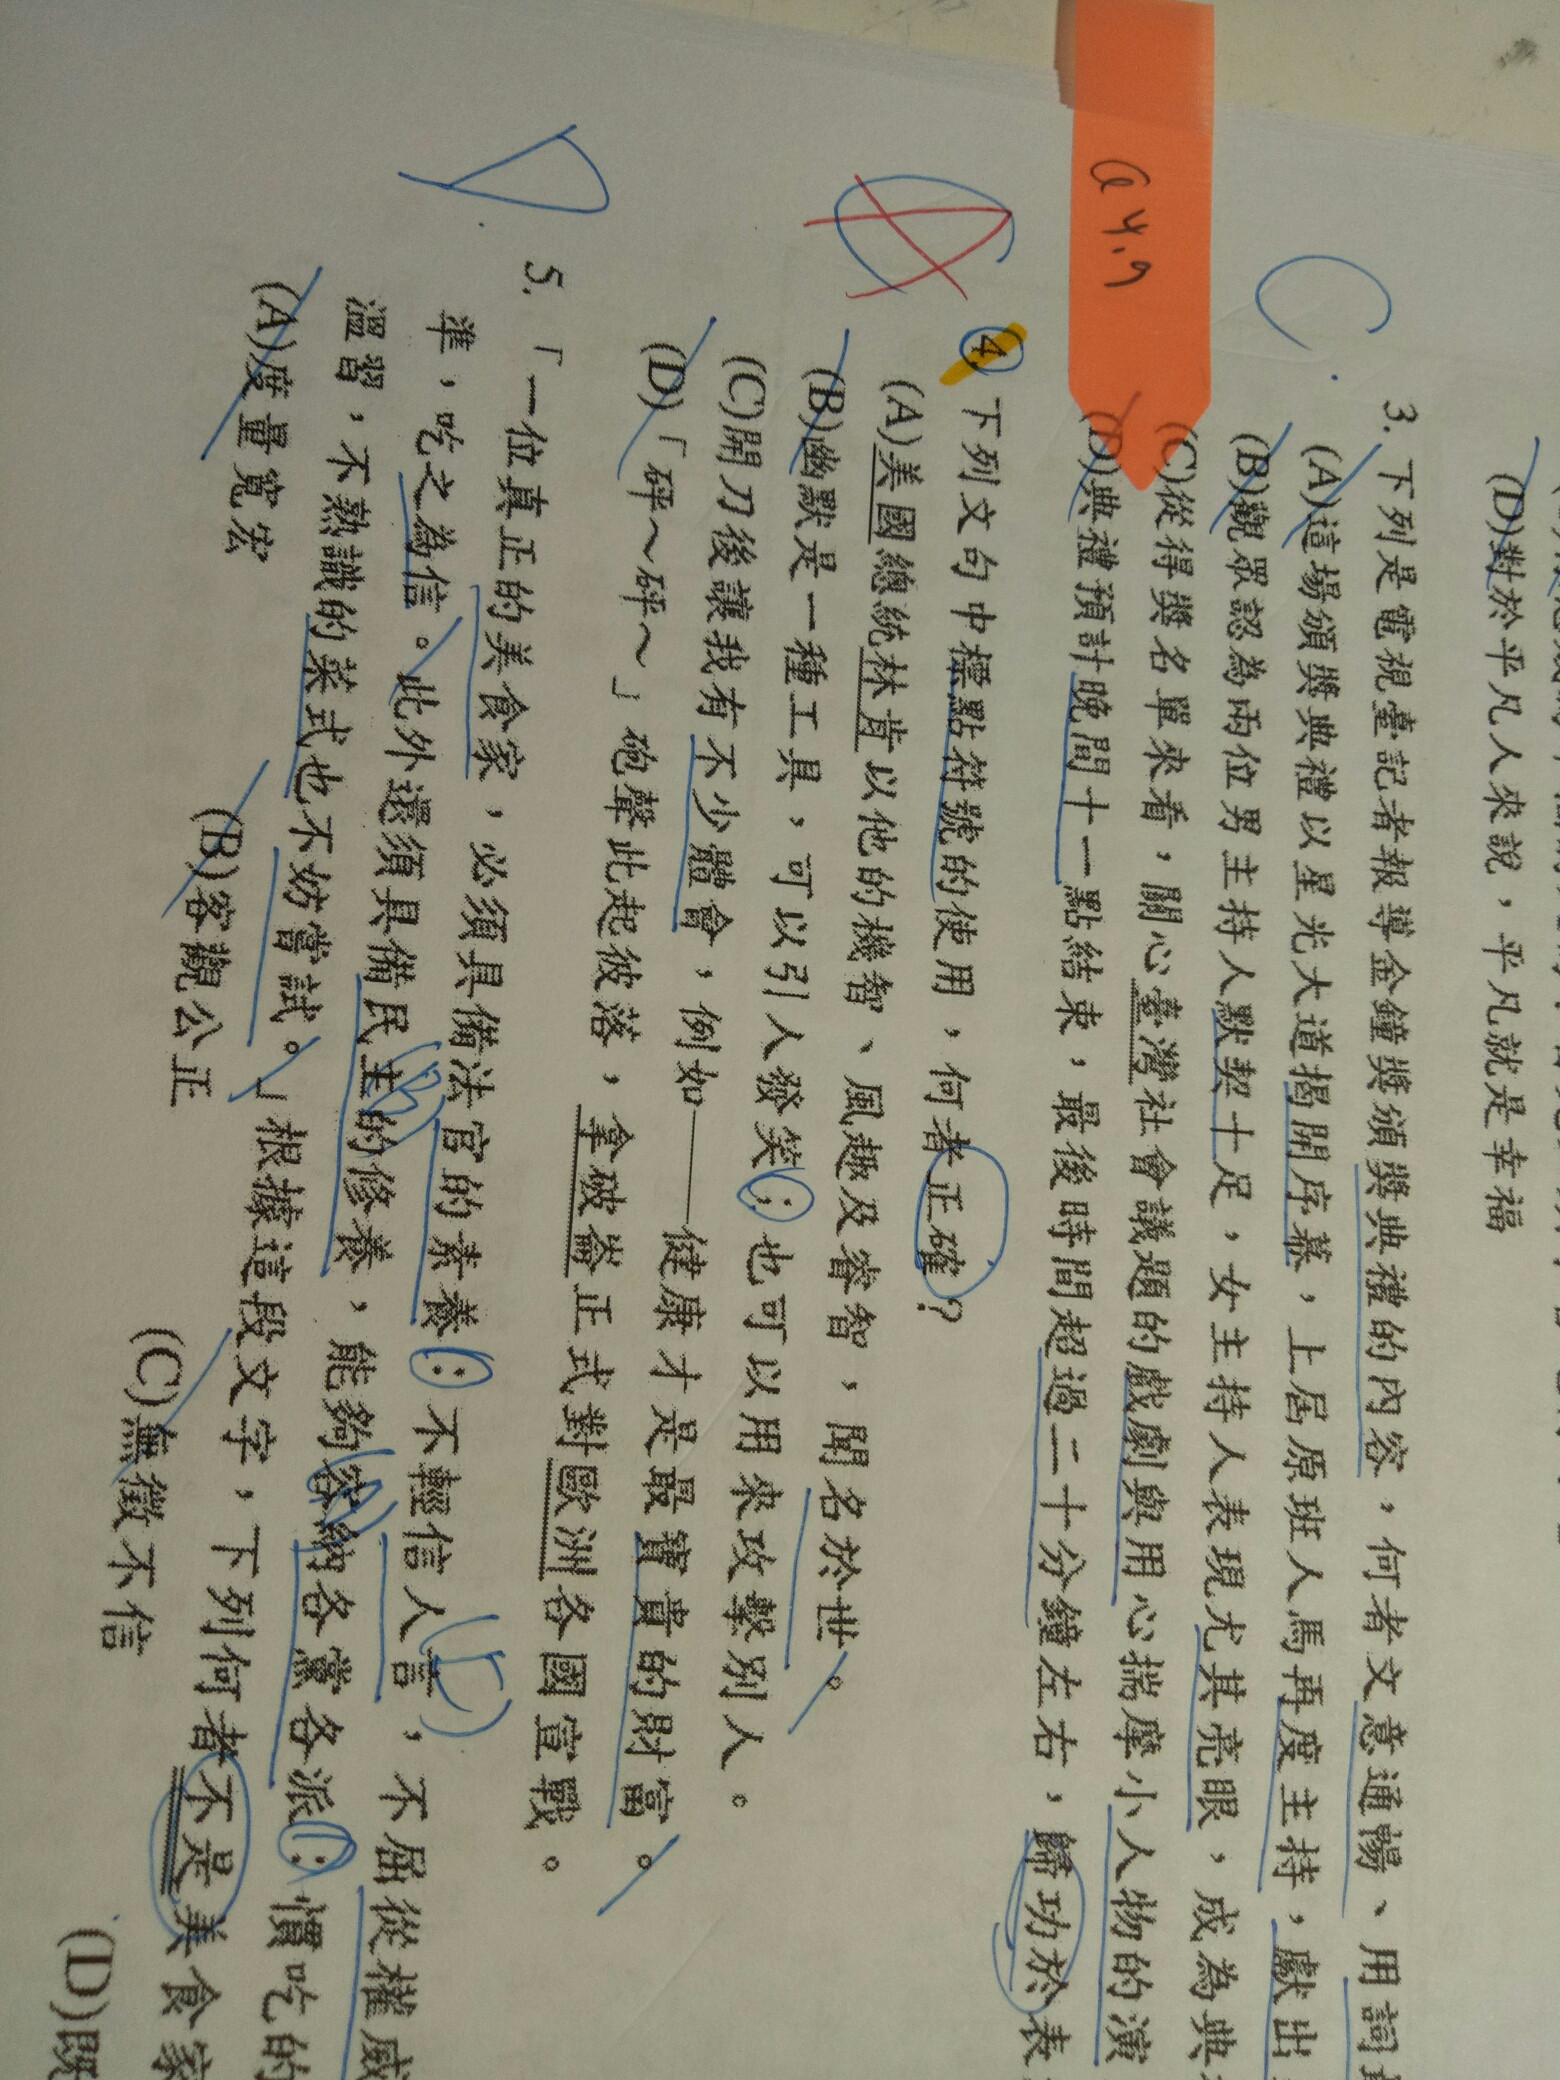 (D)對於平凡人來說，平凡就是幸福
C.
3. 下列是電視臺記者報導金鐘獎頒獎典禮的內容，何者文意通暢、用詞
(A)這場頒獎典禮以星光大道揭開序幕，上屆原班人馬再度主持，獻出
(B)觀眾認為兩位男主持人默契十足，女主持人表現尤其亮眼，成為典
(C)從得獎名單來看，關心臺灣社會議題的戲劇與用心揣摩小人物的演
(D)典禮預計晚間十一點結束，最後時間超過二十分鐘左右，歸功於表
4. 下列文句中標點符號的使用，何者正確？
(A)美國總統林肯以他的機智、風趣及睿智，聞名於世。
(B)幽默是一種工具，可以引人發笑；也可以用來攻擊別人。
(C)開刀後讓我有不少體會，例如——健康才是最寶貴的財富。
(D)「砰～砰～」砲聲此起彼落，拿破崙正式對歐洲各國宣戰。
D.
5. 「一位真正的美食家，必須具備法官的素養：不輕信人言，不屈從權威
準，吃之為信。此外還須具備民主的修養，能夠容納各黨各派：慣吃的
溫習，不熟識的菜式也不妨嘗試。」根據這段文字，下列何者不是美食家
(A)度量寬宏 (B)客觀公正 (C)無徵不信 (D)既